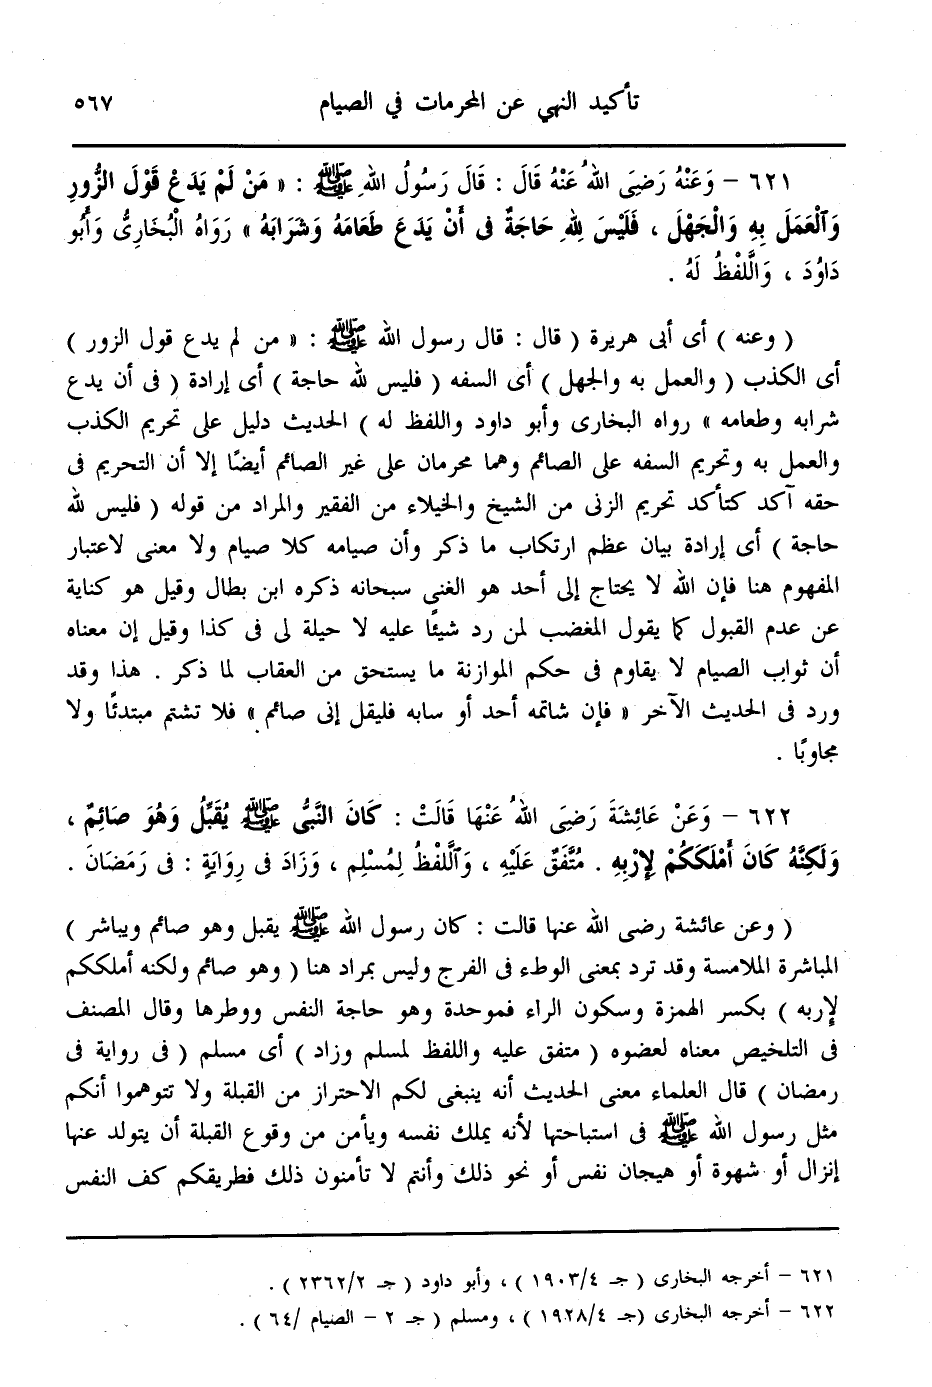 تأكيد النهي عن المحرمات في الصيام ٥٦٧
٦٢١ – وَعَنْهُ رَضِىَ اللهُ عَنْهُ قَالَ : قَالَ رَسُولُ اللهِ ﷺ : « مَنْ لَمْ يَدَعْ قَوْلَ الزُّورِ
وَٱلْعَمَلَ بِهِ وَالْجَهْلَ ، فَلَيْسَ لِلّٰهِ حَاجَةٌ فى أَنْ يَدَعَ طَعَامَهُ وَشَرَابَهُ » رَوَاهُ الْبُخَارِىُّ وَأَبُو
دَاوُدَ ، وَاللَّفْظُ لَهُ .
( وعنه ) أى أبى هريرة ( قال : قال رسول الله ﷺ : « من لم يدع قول الزور )
أى الكذب ( والعمل به والجهل ) أى السفه ( فليس لله حاجة ) أى إرادة ( فى أن يدع
شرابه وطعامه » رواه البخارى وأبو داود واللفظ له ) الحديث دليل على تحريم الكذب
والعمل به وتحريم السفه على الصائم وهما محرمان على غير الصائم أيضًا إلا أن التحريم فى
حقه آكد كتأكد تحريم الزنى من الشيخ والخيلاء من الفقير والمراد من قوله ( فليس لله
حاجة ) أى إرادة بيان عظم ارتكاب ما ذكر وأن صيامه كلا صيام ولا معنى لاعتبار
المفهوم هنا فإن الله لا يحتاج إلى أحد هو الغنى سبحانه ذكره ابن بطال وقيل هو كناية
عن عدم القبول كما يقول المغضب لمن رد شيئًا عليه لا حيلة لى فى كذا وقيل إن معناه
أن ثواب الصيام لا يقاوم فى حكم الموازنة ما يستحق من العقاب لما ذكر . هذا وقد
ورد فى الحديث الآخر « فإن شاتمه أحد أو سابه فليقل إنى صائم » فلا تشتم مبتدئًا ولا
مجاوبًا .
٦٢٢ – وَعَنْ عَائِشَةَ رَضِىَ اللهُ عَنْهَا قَالَتْ : كَانَ النَّبىُّ ﷺ يُقَبِّلُ وَهُوَ صَائِمٌ ،
وَلَكِنَّهُ كَانَ أَمْلَكَكُمْ لِإِرْبِهِ . مُتَّفَقٌ عَلَيْهِ ، وَٱللَّفْظُ لِمُسْلِمٍ ، وَزَادَ فى رِوَايَةٍ : فى رَمَضَانَ .
( وعن عائشة رضى الله عنها قالت : كان رسول الله ﷺ يقبل وهو صائم ويباشر )
المباشرة الملامسة وقد ترد بمعنى الوطء فى الفرج وليس بمراد هنا ( وهو صائم ولكنه أملككم
لإربه ) بكسر الهمزة وسكون الراء فموحدة وهو حاجة النفس ووطرها وقال المصنف
فى التلخيص معناه لعضوه ( متفق عليه واللفظ لمسلم وزاد ) أى مسلم ( فى رواية فى
رمضان ) قال العلماء معنى الحديث أنه ينبغى لكم الاحتراز من القبلة ولا تتوهموا أنكم
مثل رسول الله ﷺ فى استباحتها لأنه يملك نفسه ويأمن من وقوع القبلة أن يتولد عنها
إنزال أو شهوة أو هيجان نفس أو نحو ذلك وأنتم لا تأمنون ذلك فطريقكم كف النفس
٦٢١ – أخرجه البخارى ( جـ ١٩٠٣/٤ ) ، وأبو داود ( جـ ٢٣٦٢/٢ ) .
٦٢٢ – أخرجه البخارى (جـ ١٩٢٨/٤ ) ، ومسلم ( جـ ٢ – الصيام /٦٤ ) .